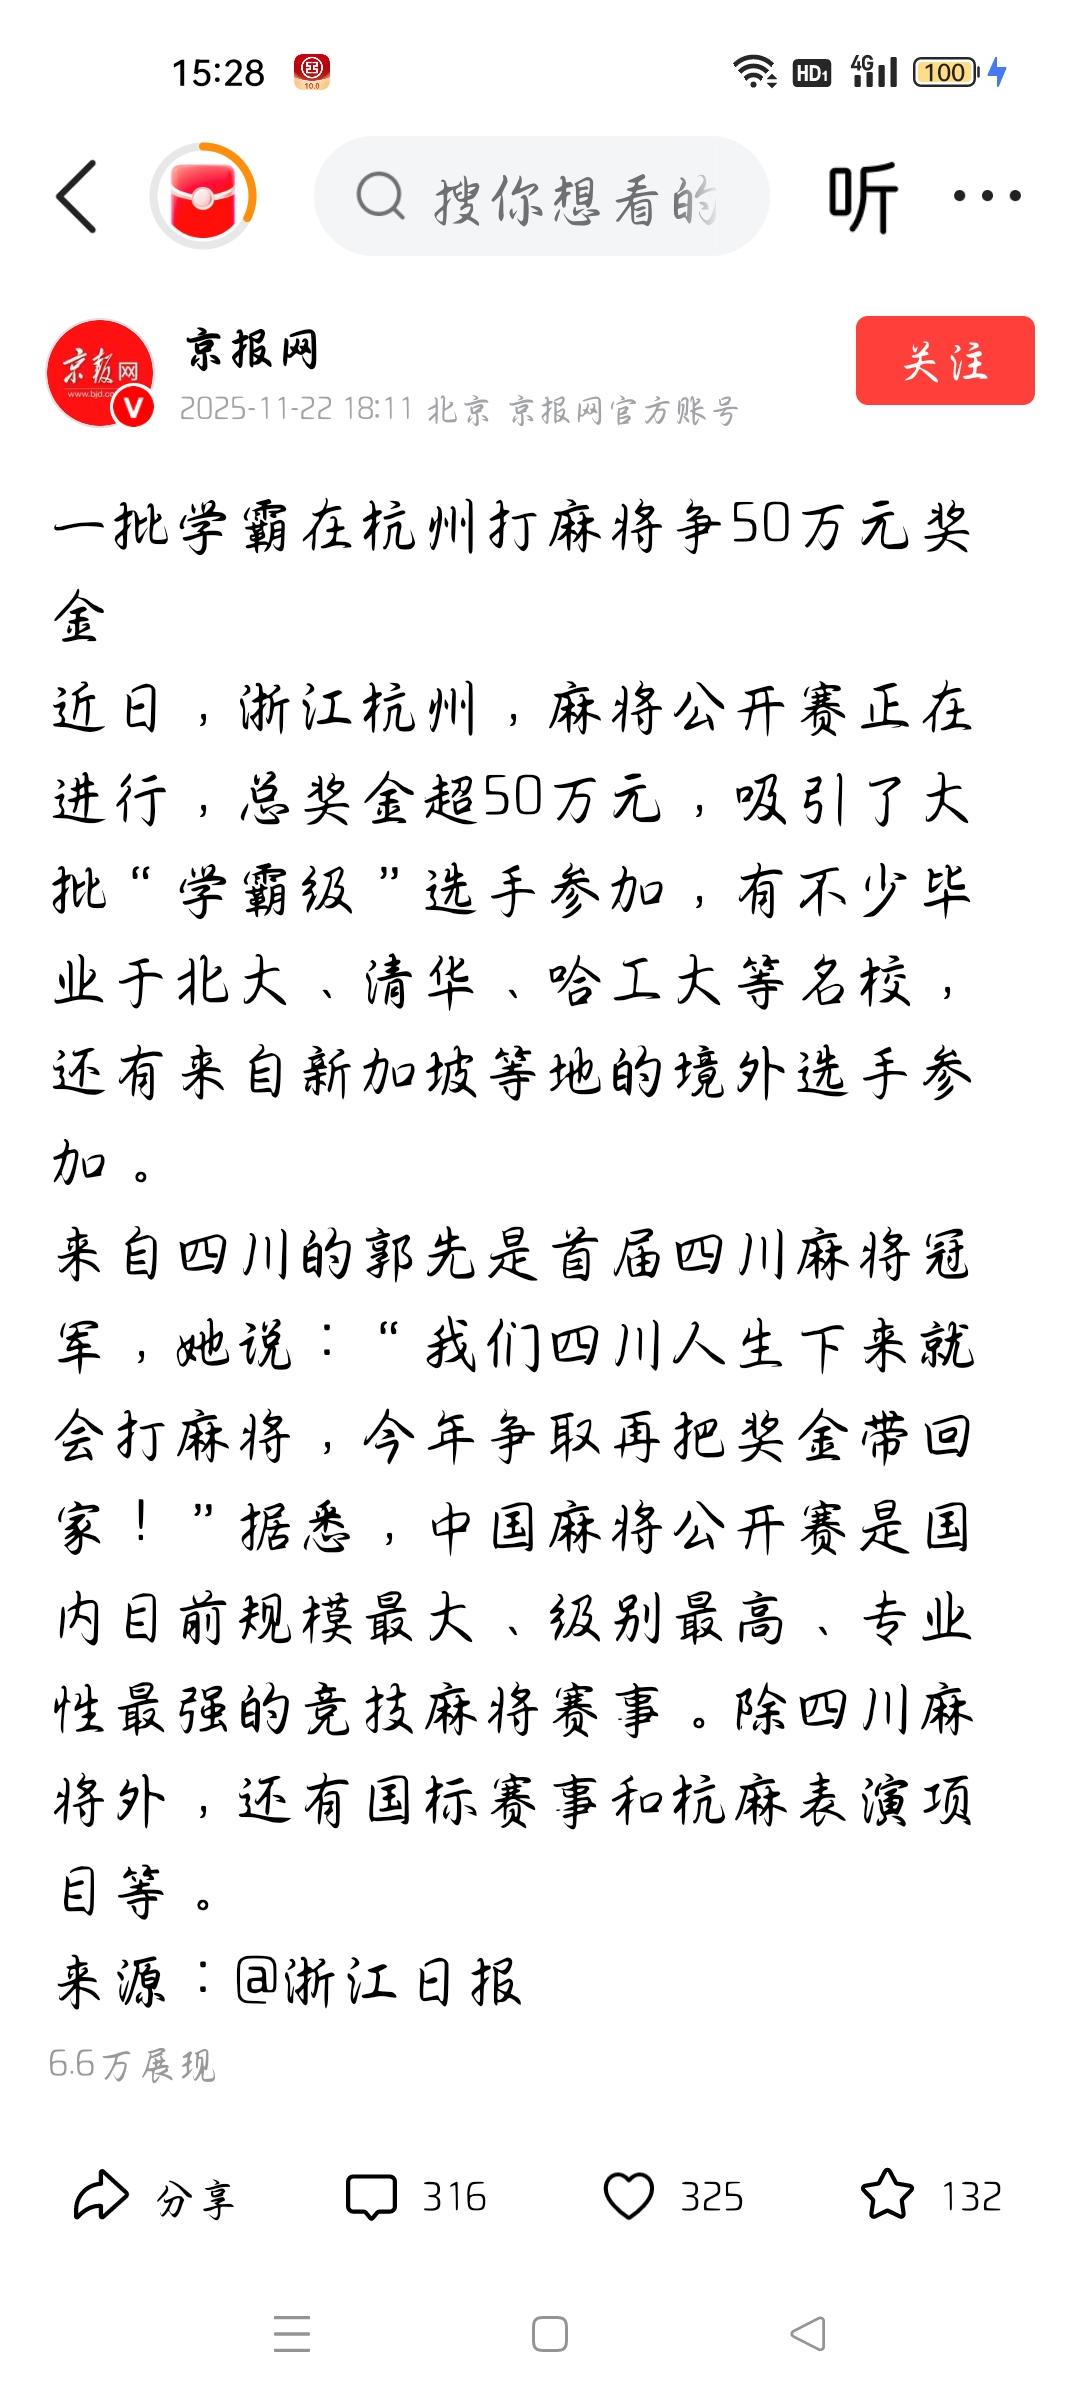 15:28
10.0
HD1
4G
100
搜你想看的
听
京报网
www.bjd.co
V
京报网
2025-11-22 18:11 北京 京报网官方账号
关注
一批学霸在杭州打麻将争50万元奖
金
近日，浙江杭州，麻将公开赛正在
进行，总奖金超50万元，吸引了大
批“学霸级”选手参加，有不少毕
业于北大、清华、哈工大等名校，
还有来自新加坡等地的境外选手参
加。
来自四川的郭先是首届四川麻将冠
军，她说：“我们四川人生下来就
会打麻将，今年争取再把奖金带回
家！”据悉，中国麻将公开赛是国
内目前规模最大、级别最高、专业
性最强的竞技麻将赛事。除四川麻
将外，还有国标赛事和杭麻表演项
目等。
来源：@浙江日报
6.6万展现
分享
316
325
132